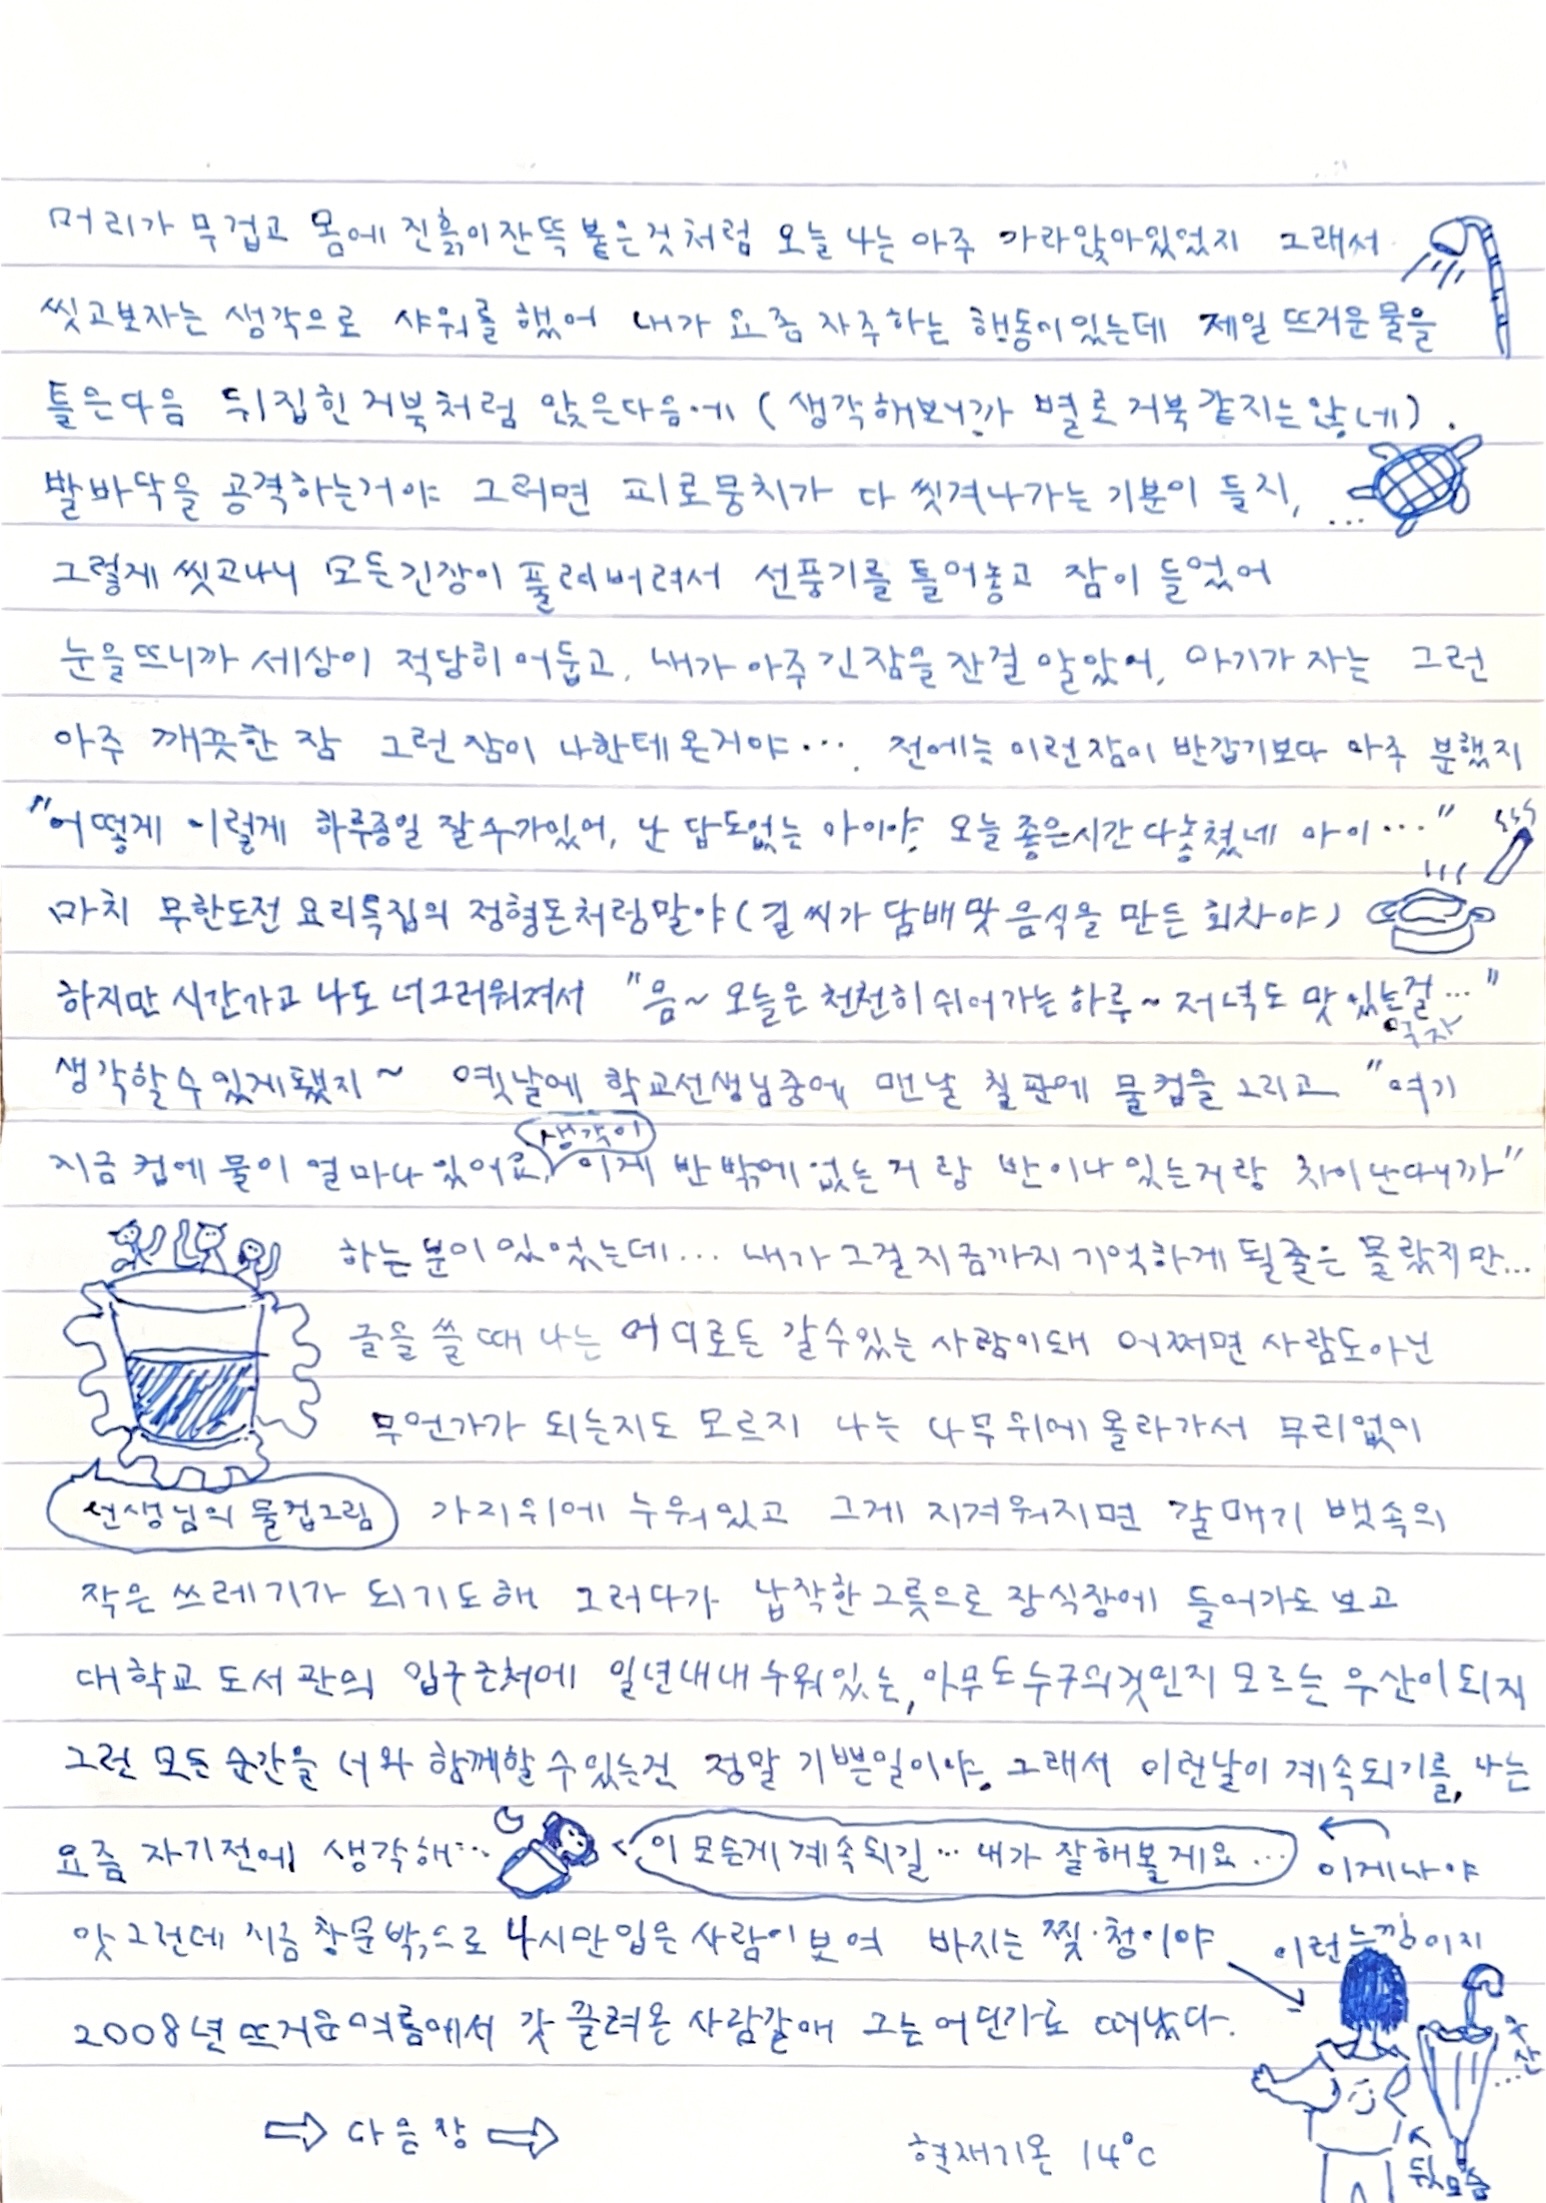 머리가 무겁고 몸에 진흙이잔뜩 붙은것처럼 오늘 나는 아주 가라앉아있었지 그래서
씻고보자는 생각으로 샤워를 했어 내가 요즘 자주하는 행동이있는데 제일 뜨거운물을
틀은다음 뒤집힌 거북처럼 앉은다음에 (생각해보니까 별로 거북같지는않네).
발바닥을 공격하는거야 그러면 피로뭉치가 다 씻겨나가는 기분이 들지, ...
그렇게 씻고나니 모든긴장이 풀려버려서 선풍기를 틀어놓고 잠이 들었어
눈을뜨니까 세상이 적당히 어둡고, 내가 아주 긴잠을 잔걸 알았어, 아기가 자는 그런
아주 깨끗한 잠 그런잠이 나한테 온거야.... 전에는 이런잠이 반갑기보다 아주 분했지
"어떻게 이렇게 하루종일 잘수가있어, 난 답도없는 아이야, 오늘 좋은시간 다놓쳤네 아이..."
마치 무한도전 요리특집의 정형돈처럼말야 (길씨가 담배맛 음식을 만든 회차야)
하지만 시간가고 나도 너그러워져서 "음~ 오늘은 천천히 쉬어가는 하루~ 저녁도 맛있는걸..."
먹자
생각할수있게됐지~ 옛날에 학교선생님중에 맨날 칠판에 물컵을 그리고 "여기
생각이
지금 컵에 물이 얼마나있어요, 이게 반밖에없는거랑 반이나있는거랑 차이난다니까"
하는분이 있었는데... 내가 그걸지금까지 기억하게 될줄은 몰랐지만...
글을 쓸때 나는 어디로든 갈수있는 사람이돼 어쩌면 사람도아닌
무언가가 되는지도 모르지 나는 나무위에올라가서 무리없이
선생님의 물컵그림
가지위에 누워있고 그게 지겨워지면 갈매기 뱃속의
작은 쓰레기가 되기도해 그러다가 납작한그릇으로 장식장에 들어가도 보고
대학교 도서관의 입구근처에 일년내내누워있는, 아무도누구의것인지 모르는 우산이되지
그런 모든순간을 너와 함께할 수있는건 정말 기쁜일이야. 그래서 이런날이 계속되기를, 나는
요즘 자기전에 생각해...
이 모든게 계속되길... 내가 잘해볼게요...
이게나야
앗 그런데 지금 창문밖으로 나시만입은 사람이보여 바지는 찢청이야
이런느낌이지
2008년 뜨거운여름에서 갓 끌려온 사람같애 그는어딘가로 떠났다.
우산...
뒷모습
다음장
현재기온 14°C